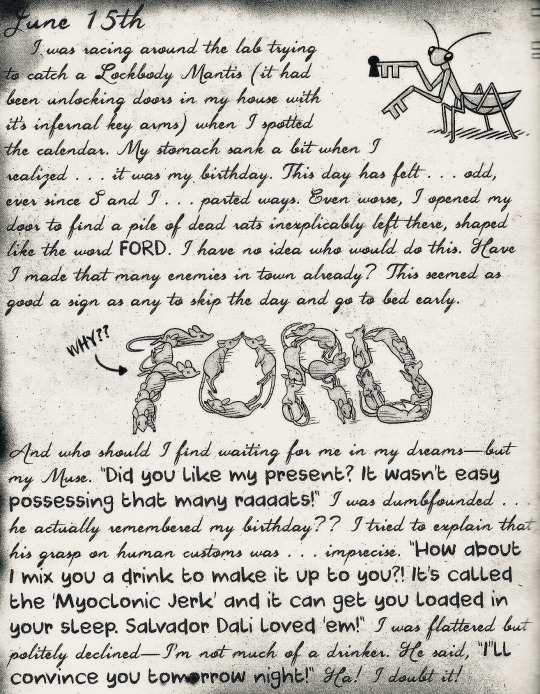 June 15th
I was racing around the lab trying
to catch a Lockbody Mantis (it had
been unlocking doors in my house with
it's infernal key arms) when I spotted
the calendar. My stomach sank a bit when I
realized . . . it was my birthday. This day has felt . . . odd,
ever since S and I . . . parted ways. Even worse, I opened my
door to find a pile of dead rats inexplicably left there, shaped
like the word FORD. I have no idea who would do this. Have
I made that many enemies in town already? This seemed as
good a sign as any to skip the day and go to bed early.
WHY??
FORD
And who should I find waiting for me in my dreams—but
my Muse. "Did you like my present? It wasn't easy
possessing that many raaaats!" I was dumbfounded . . .
he actually remembered my birthday?? I tried to explain that
his grasp on human customs was . . . imprecise. "How about
I mix you a drink to make it up to you?! It's called
the 'Myoclonic Jerk' and it can get you loaded in
your sleep. Salvador Dali loved 'em!" I was flattered but
politely declined—I'm not much of a drinker. He said, "I'll
convince you tomorrow night!" Ha! I doubt it!